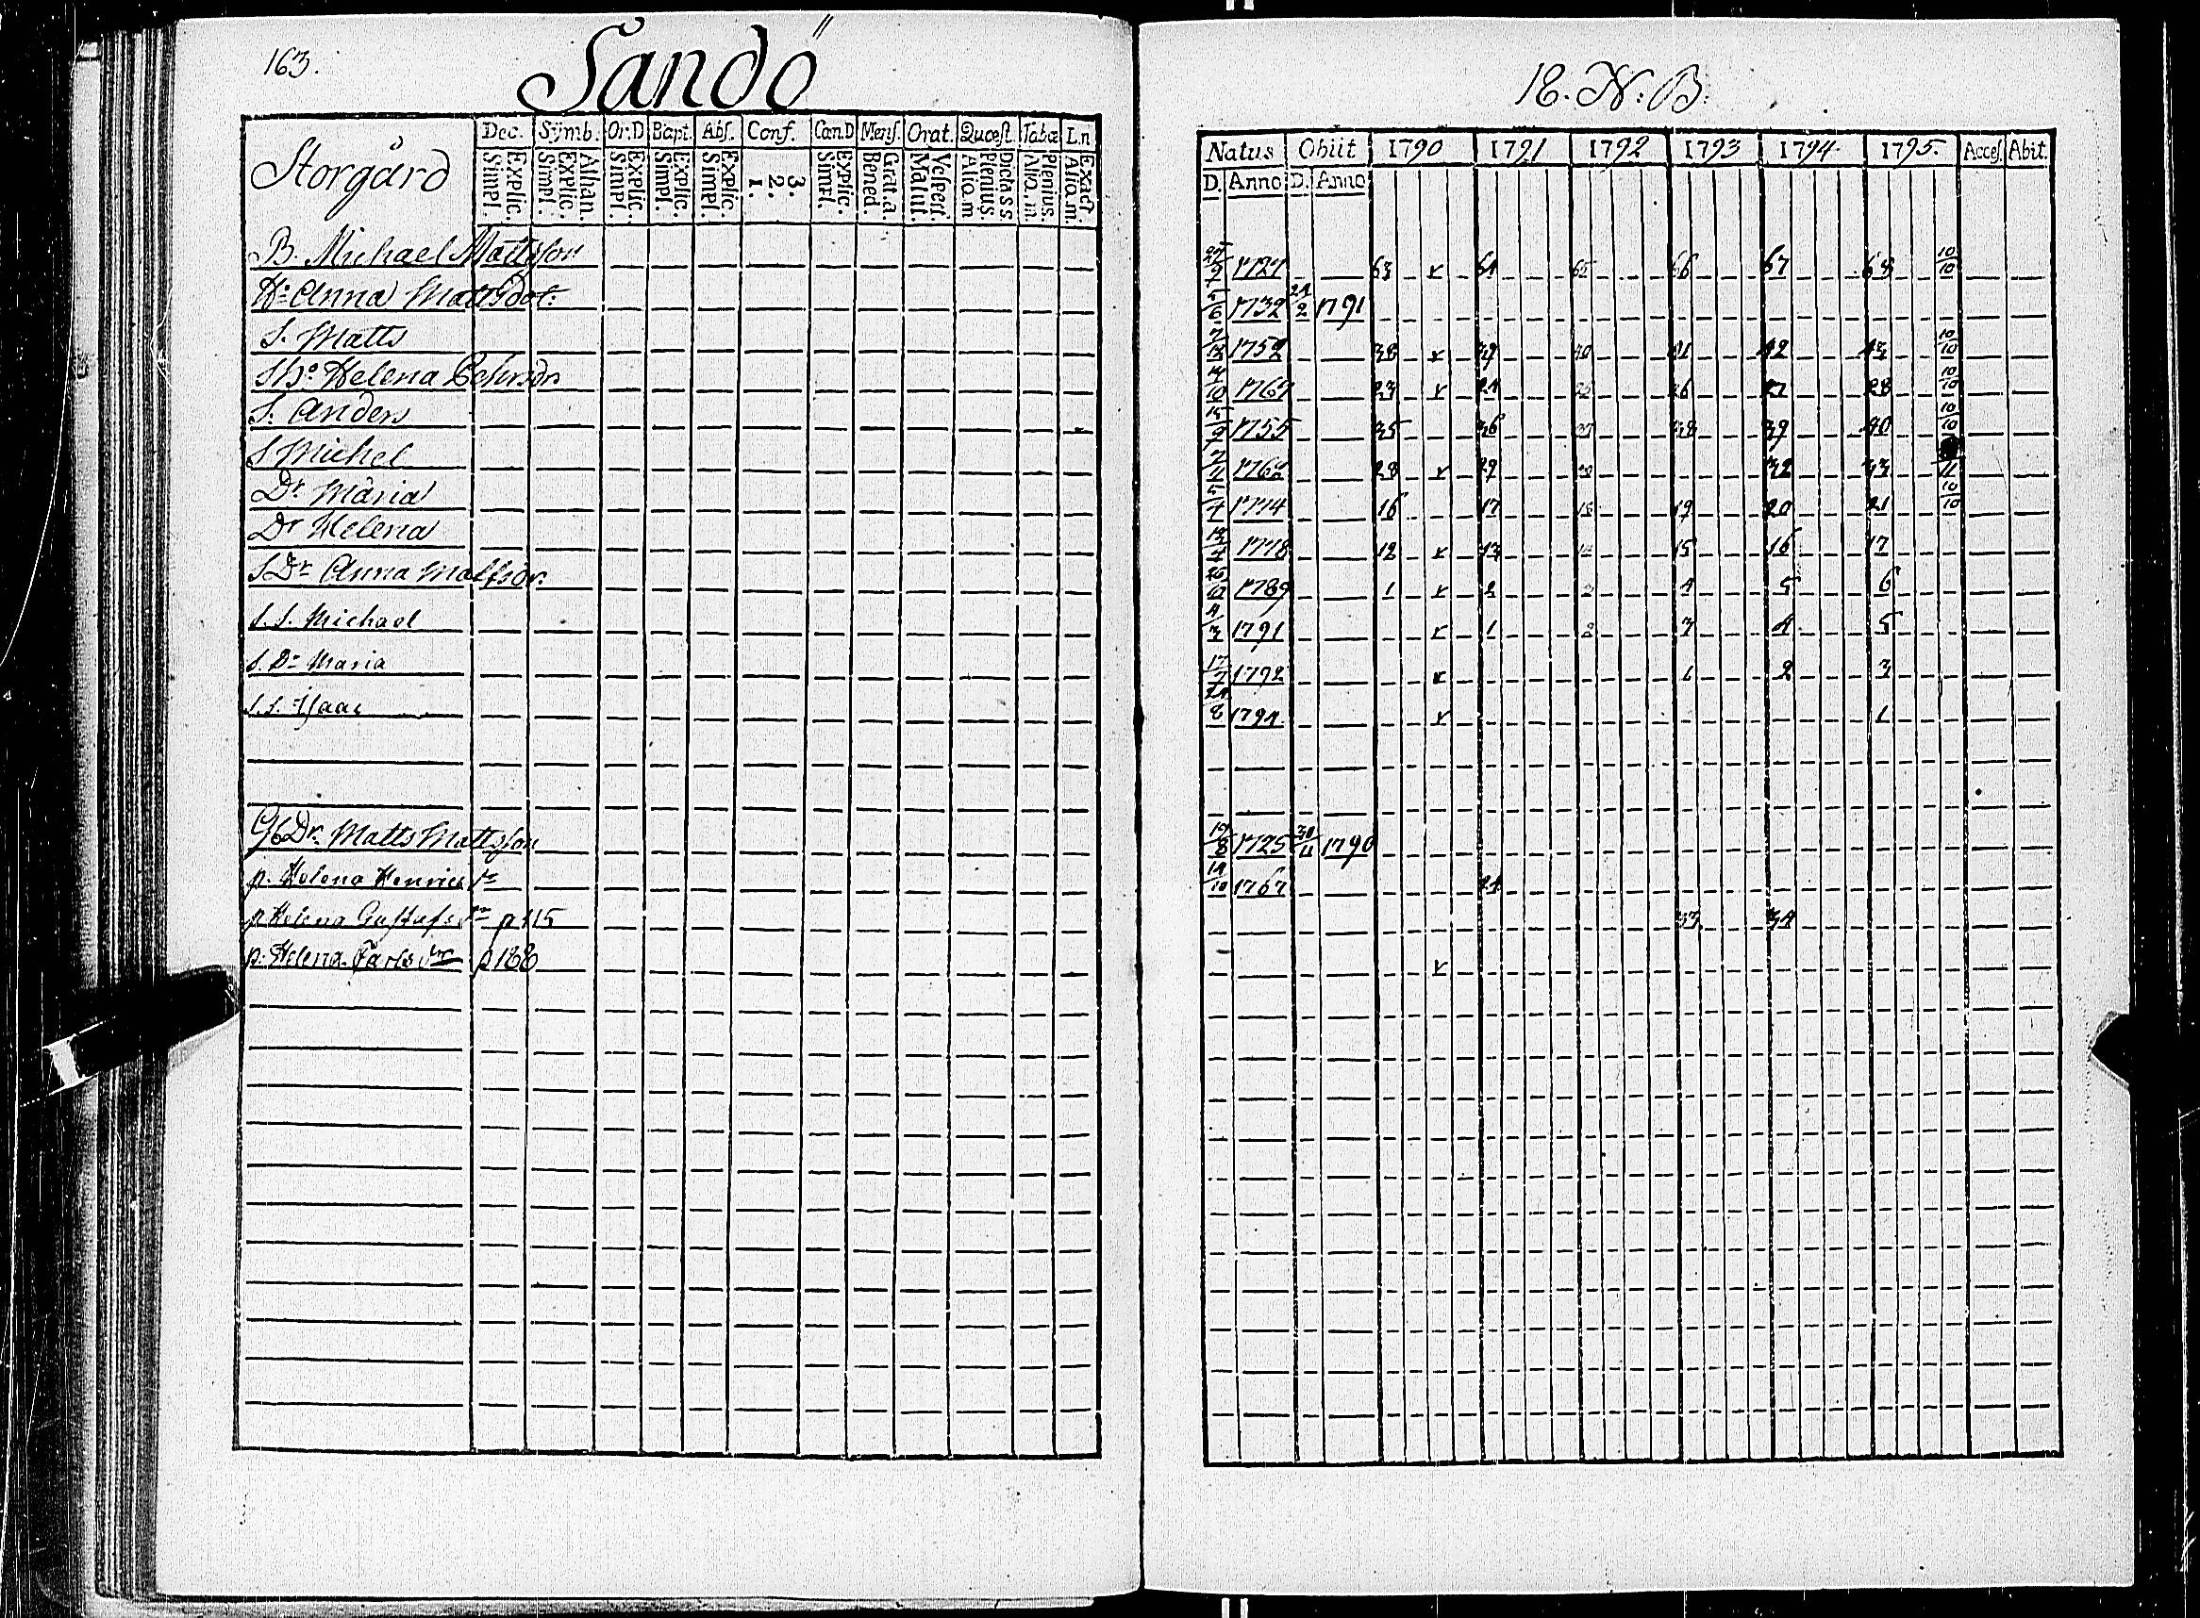 163.
Sandö
Storgård
Dec. Symb. Or.D Bapt. Abs. Conf. Can.D Mens. Orat. Quæst. Tabæ L.n
Explic. Simpl. Athan. Explic. Simpl. Explic. Simpl. Explic. Simpl. Explic. Simpl. 3. 2. 1. Explic. Simpl. Grat. a. Bened. Vespert. Matut. Dicta ss Plenius. Aliq. m Plenius. Aliq. m. Exact. Aliq. m.
B. Michael Mattsson
H. Anna Mattsdot:
S. Matts
Sh. Helena Pehrsdr
S. Anders
S Michel
Dr Maria
Dr Helena
S Dr Anna Mattsdr.
S. S. Michael
S. Dr Maria
S. S. Isaac
Gb Dr. Matts Mattsson
p. Helena Henrics dr
p Helena Gustafs dr p 115
p. Helena Carls dr p 188
18. N: B:
Natus Obiit 1790 1791 1792 1793 1794 1795. Acces. Abit.
D. Anno D. Anno
27/9 1727 63 x 64 65 66 67 68 10/10
5/6 1732 24/2 1791
1752 38 x 39 40 41 42 43 10/10
14/10 1767 23 x 24 25 26 27 28 10/10
15/9 1755 35 36 37 38 39 40 10/10
7/11 1762 28 x 29 30 32 33
5/1 1774 16 17 18 19 20 21 10/10
1778 12 x 13 14 15 16 17
1789 1 x 2 3 4 5 6
4/3 1791 x 1 2 3 4 5
17/7 1792 x 1 2 3
24/8 1794 x 1
19/8 1725 30/11 1790
14/10 1767 24
33 34
x